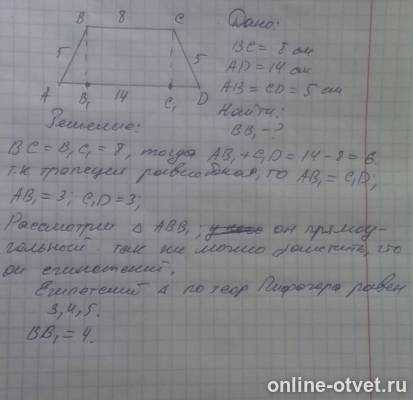 B 8 C
5 5
A B₁ 14 C₁ D
Дано:
BC = 8 см
AD = 14 см
AB = CD = 5 см
Найти:
BB₁ - ?
Решение:
BC = B₁C₁ = 8, тогда AB₁ + C₁D = 14 - 8 = 6.
т.к трапеция равнобокая, то AB₁ = C₁D;
AB₁ = 3; C₁D = 3;
Рассмотрим △ ABB₁; он прямоу-
гольный. так же можно заметить, что
он египетский.
Египетский △ по теор Пифагора равен
3, 4, 5.
BB₁ = 4.
online-otvet.ru